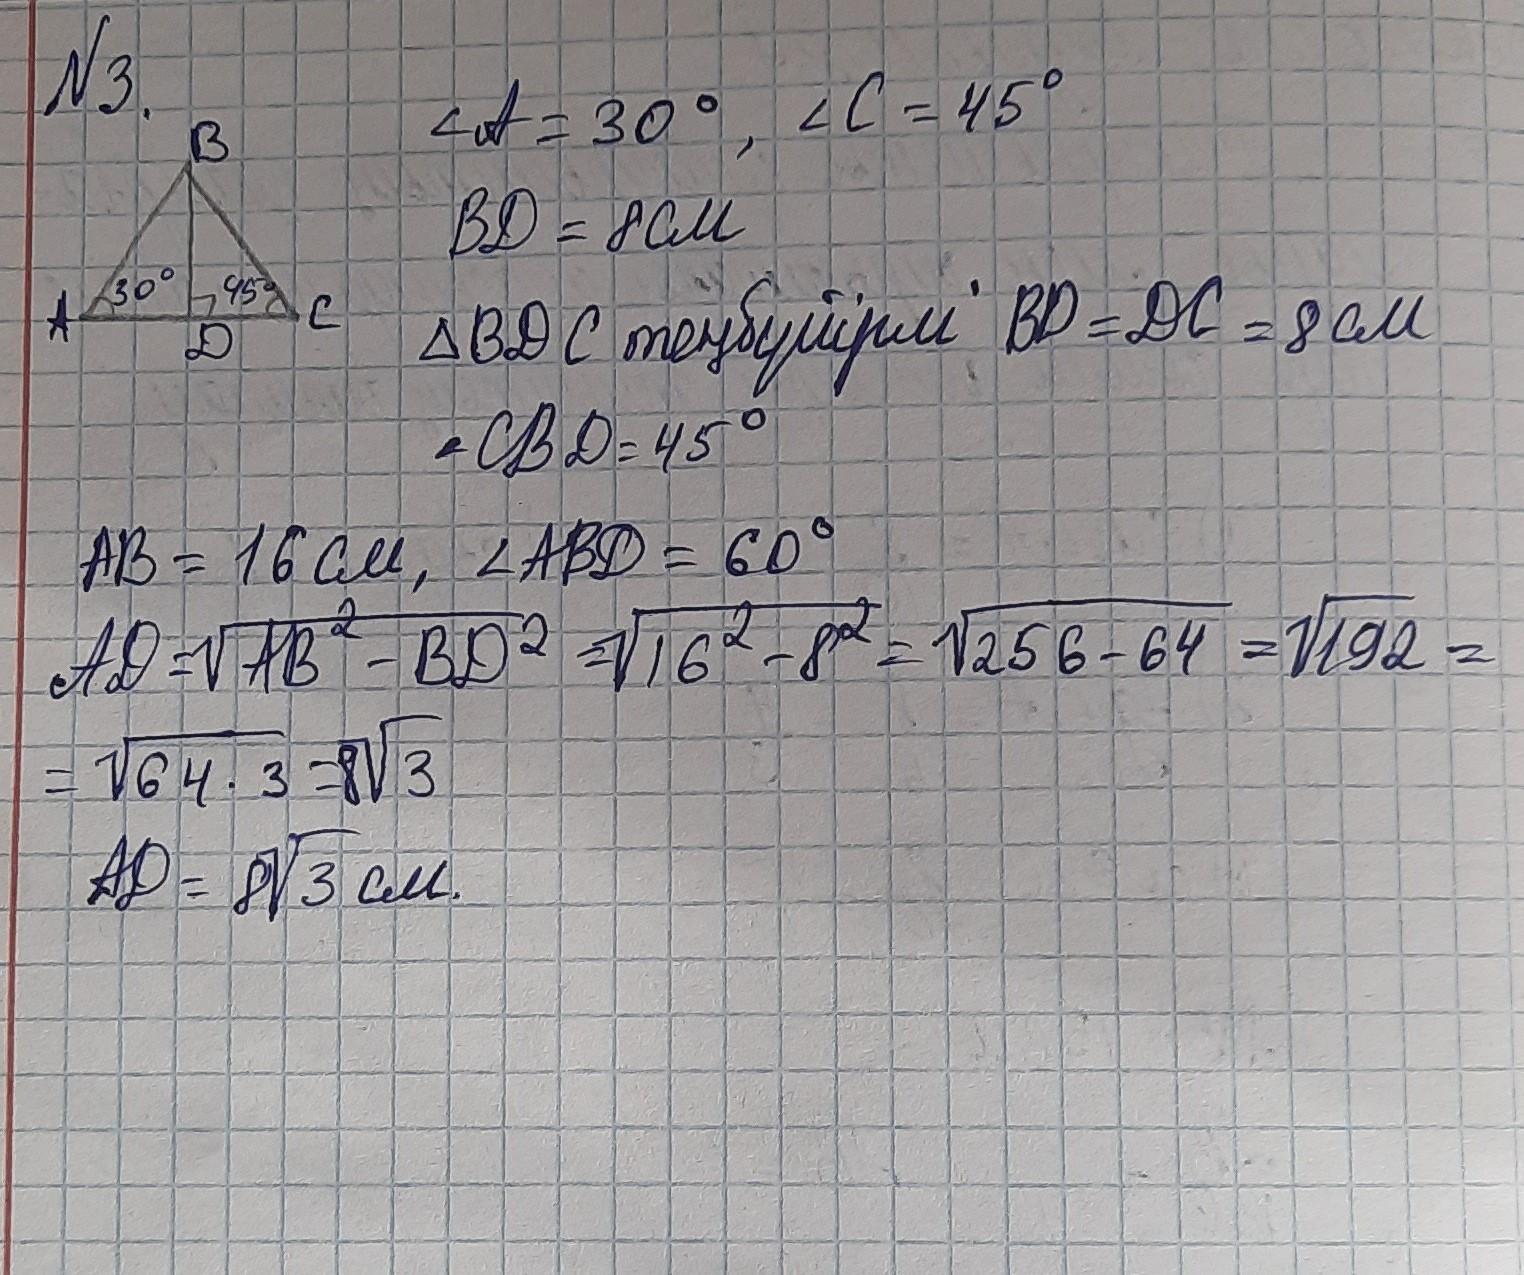 №3.
∠A = 30°, ∠C = 45°
B
BD = 8 см
30° 45°
A D C
△BDC теңбүйірлі BD = DC = 8 см
∠CBD = 45°
AB = 16 см, ∠ABD = 60°
AD = √AB² - BD² = √16² - 8² = √256 - 64 = √192 =
= √64 · 3 = 8√3
AD = 8√3 см.